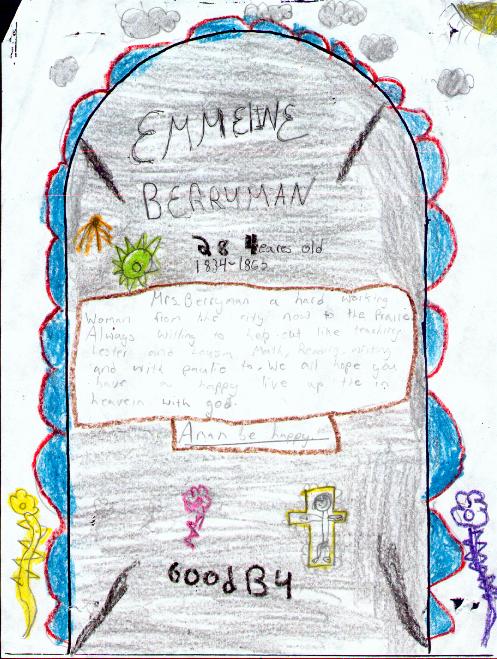 EMMELINE
BERRYMAN
28 Yeares old
1834~1862
Mrs. Berryman a hard working
Woman from the city now to the Prairie.
Always willing to help out like teaching
Lester and Math, Reading, writing
and with to. We all hope you
have a happy live up in
heavein with god.
be happy
GOOd By